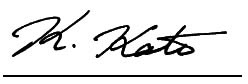 K. Kato